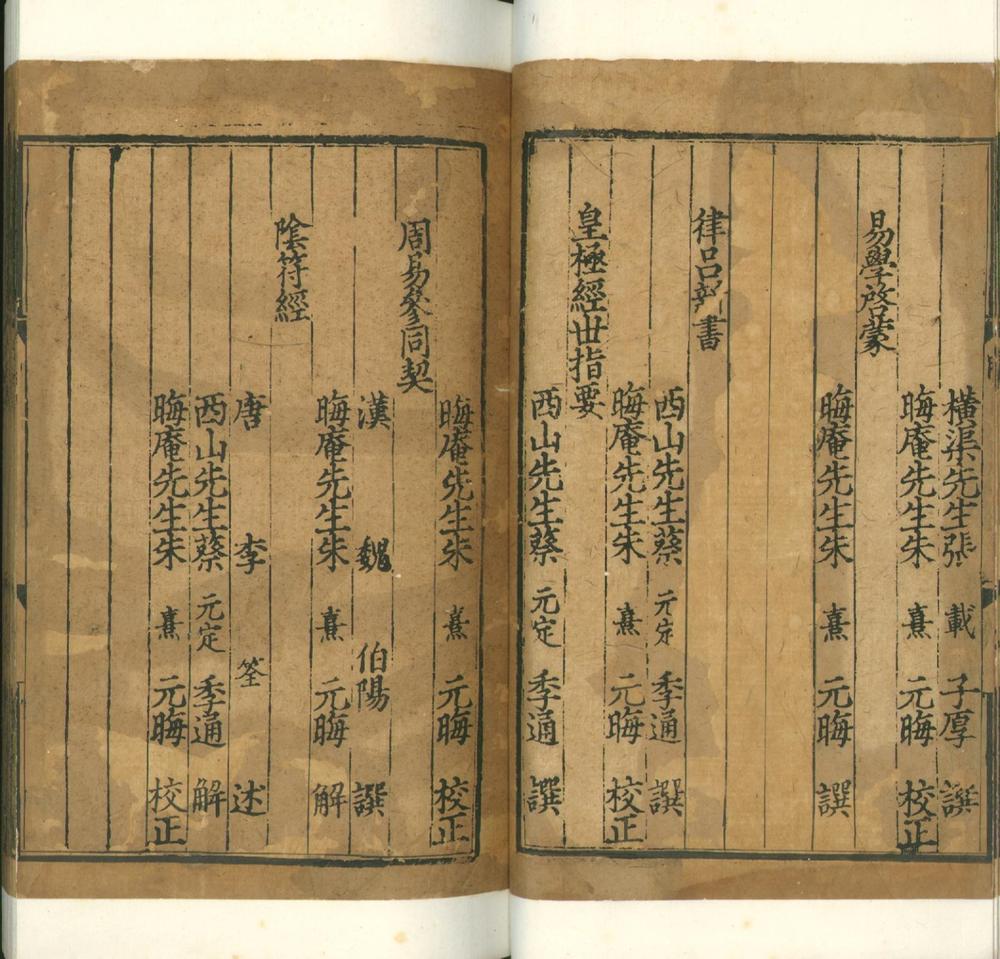 橫渠先生張 載 子厚 譔
晦庵先生朱 熹 元晦 校正
易學啓蒙
晦庵先生朱 熹 元晦 譔
律呂新書
西山先生蔡 元定 季通 譔
晦庵先生朱 熹 元晦 校正
皇極經世指要
西山先生蔡 元定 季通 譔
晦庵先生朱 熹 元晦 校正
周易參同契
漢 魏 伯陽 譔
晦庵先生朱 熹 元晦 解
陰符經
唐 李 筌 述
西山先生蔡 元定 季通 解
晦庵先生朱 熹 元晦 校正